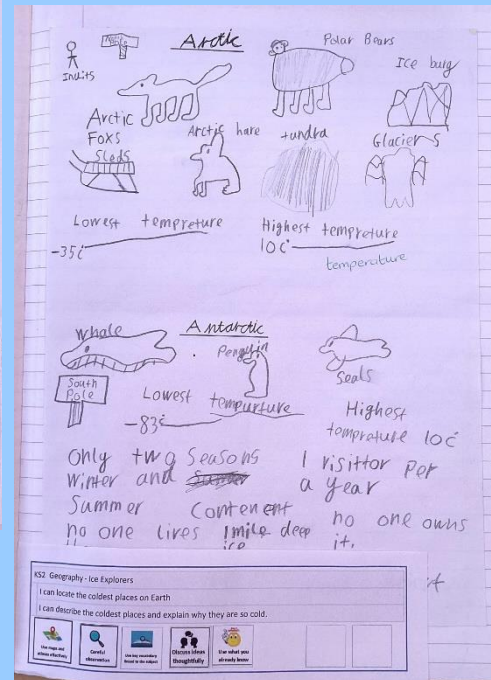 Arctic
Inuits
Polar Bears
Ice burg
Arctic
Foxs
Arctic hare
tundra
Glaciers
Sleds
Lowest tempreture
-35c
Highest tempreture
10c
temperature
Antarctic
Whale
Penguin
Seals
South
Pole
Lowest tempurture
-83c
Highest
temprature 10c
Only two Seasons
Winter and
Summer
1 visittor per
a year
Contenent
no one lives
1mile deep
ice
no one owns
it.
KS2 Geography - Ice Explorers
I can locate the coldest places on Earth
I can describe the coldest places and explain why they are so cold.
Use maps and
atlases effectively
Careful
observation
Use key vocabulary
linked to the subject
Discuss ideas
thoughtfully
Use what you
already know